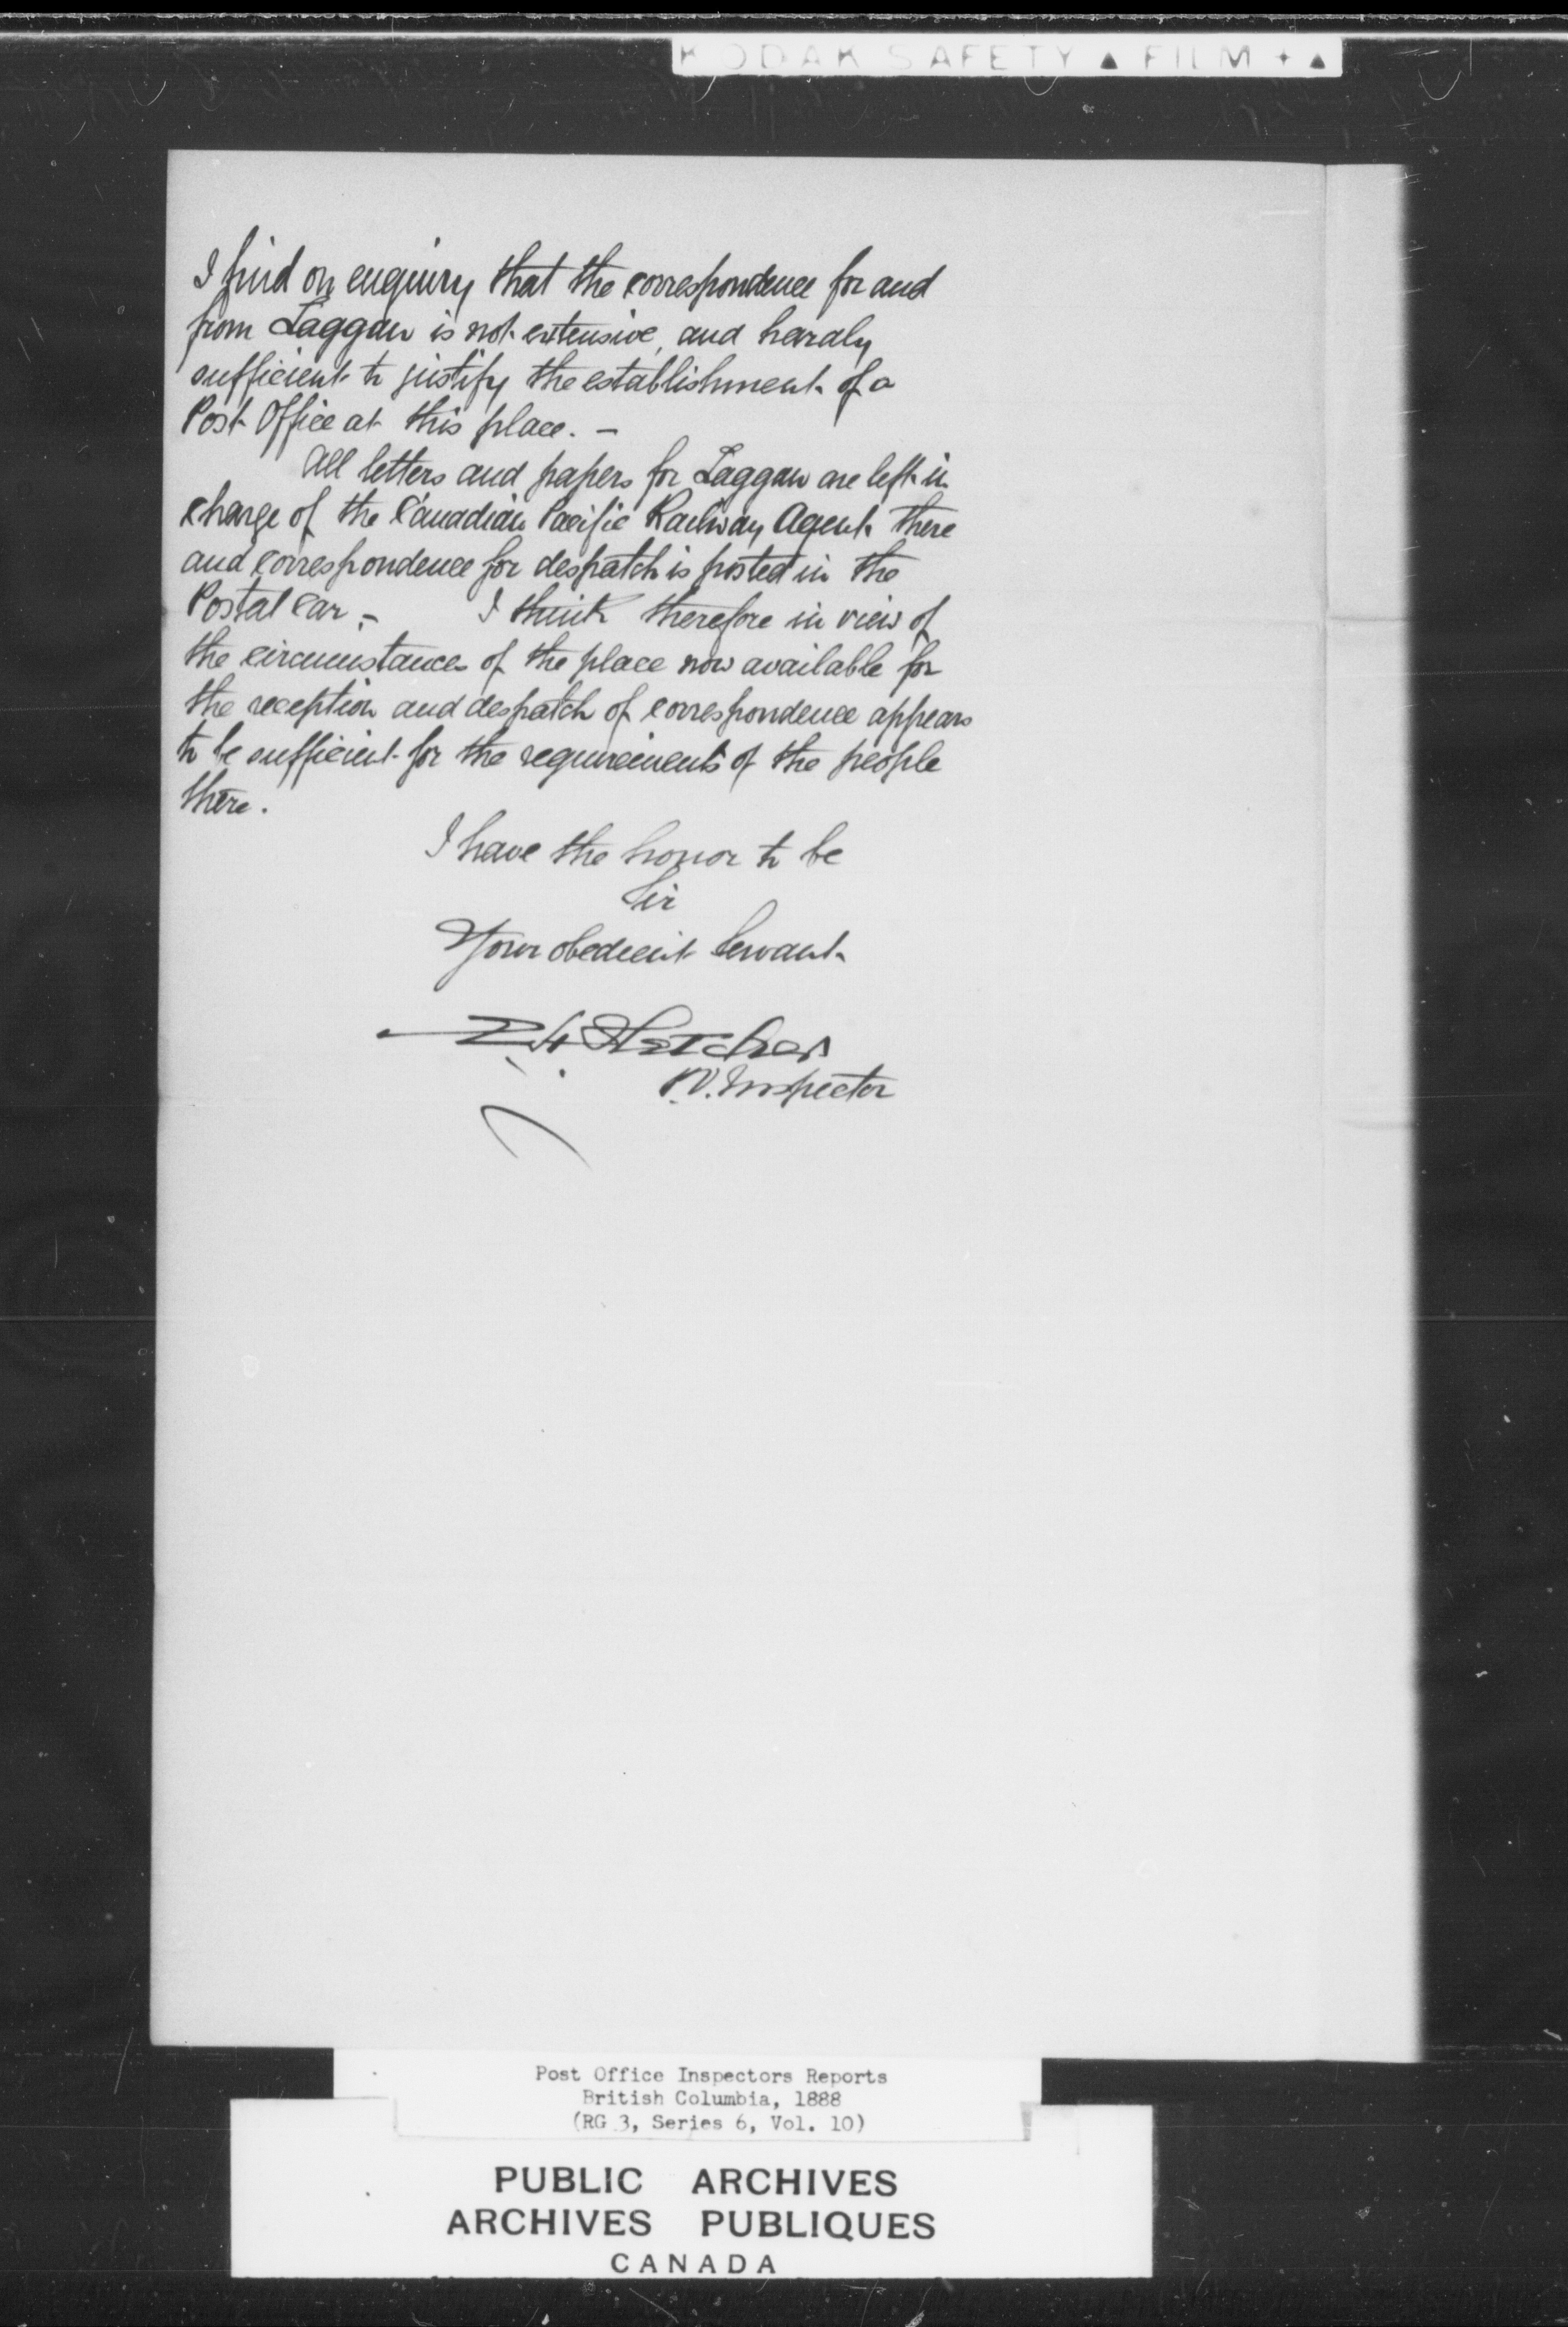 KODAK SAFETY ▲ FILM + ▲
I find on enquiry that the correspondence for and
from Laggan is not extensive, and hardly
sufficient to justify the establishment of a
Post Office at this place. –
All letters and papers for Laggan are left in
charge of the Canadian Pacific Railway Agent there
and correspondence for despatch is posted in the
Postal Car. – I think therefore in view of
the circumstances of the place now available for
the reception and despatch of correspondence appears
to be sufficient for the requirements of the people
there.
I have the honor to be
Sir
Your obedient Servant
Fletcher
P.O. Inspector
Post Office Inspectors Reports
British Columbia, 1888
(RG 3, Series 6, Vol. 10)
PUBLIC ARCHIVES
ARCHIVES PUBLIQUES
CANADA